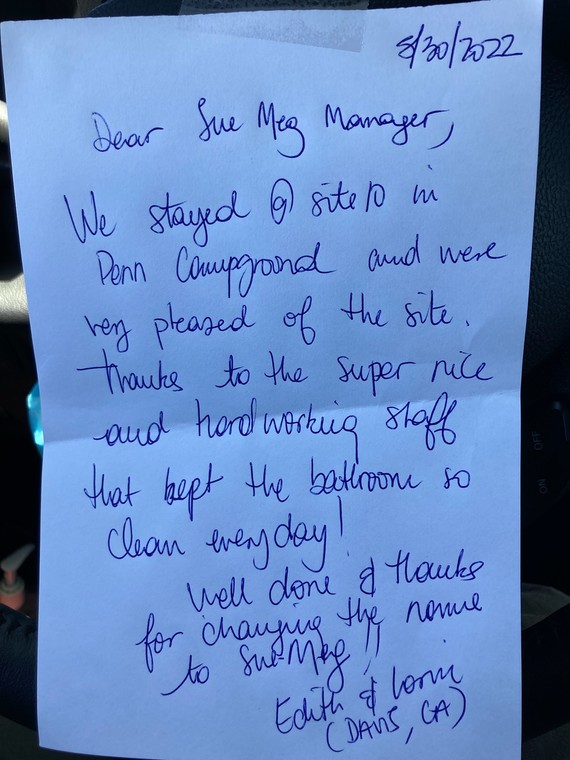 8/30/2022
Dear Sue Meg Manager,
We stayed @ site 10 in
Penn Campground and were
very pleased of the site.
Thanks to the super nice
and hardworking staff
that kept the bathroom so
clean everyday!
Well done & thanks
for changing the name
to Sue-Meg!!
Edith &
(DAVIS, CA)
OFF
ON